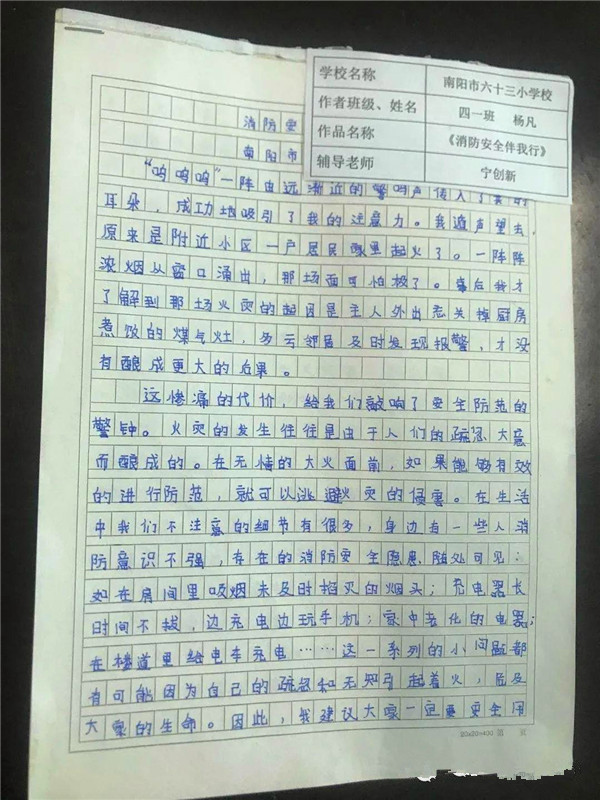 学校名称 南阳市六十三小学校
作者班级、姓名 四一班 杨凡
作品名称 《消防安全伴我行》
辅导老师 宁创新
消防安
南阳市
“呜呜呜”一阵由远渐近的警鸣声传入了我的
耳朵,成功地吸引了我的注意力。我遁声望去,
原来是附近小区一户居民家里起火了。一阵阵
浓烟从窗口涌出,那场面可怕极了。事后我才
了解到那场火灾的起因是主人外出忘关掉厨房
煮饭的煤气灶,多亏邻居及时发现报警,才没
有酿成更大的后果。
这惨痛的代价,给我们敲响了安全防范的
警钟。火灾的发生往往是由于人们的疏忽大意
而酿成的。在无情的大火面前,如果能够有效
的进行防范,就可以逃避火灾的侵害。在生活
中我们不注意的细节有很多,身边有一些人消
防意识不强,存在的消防安全隐患随处可见:
如在房间里吸烟未及时掐灭的烟头;充电器长
时间不拔,边充电边玩手机;家中老化的电器;
在楼道里给电车充电……这一系列的小问题都
有可能因为自己的疏忽和无知引起着火,危及
大家的生命。因此,我建议大家一定要安全用
20x20=400 第 页